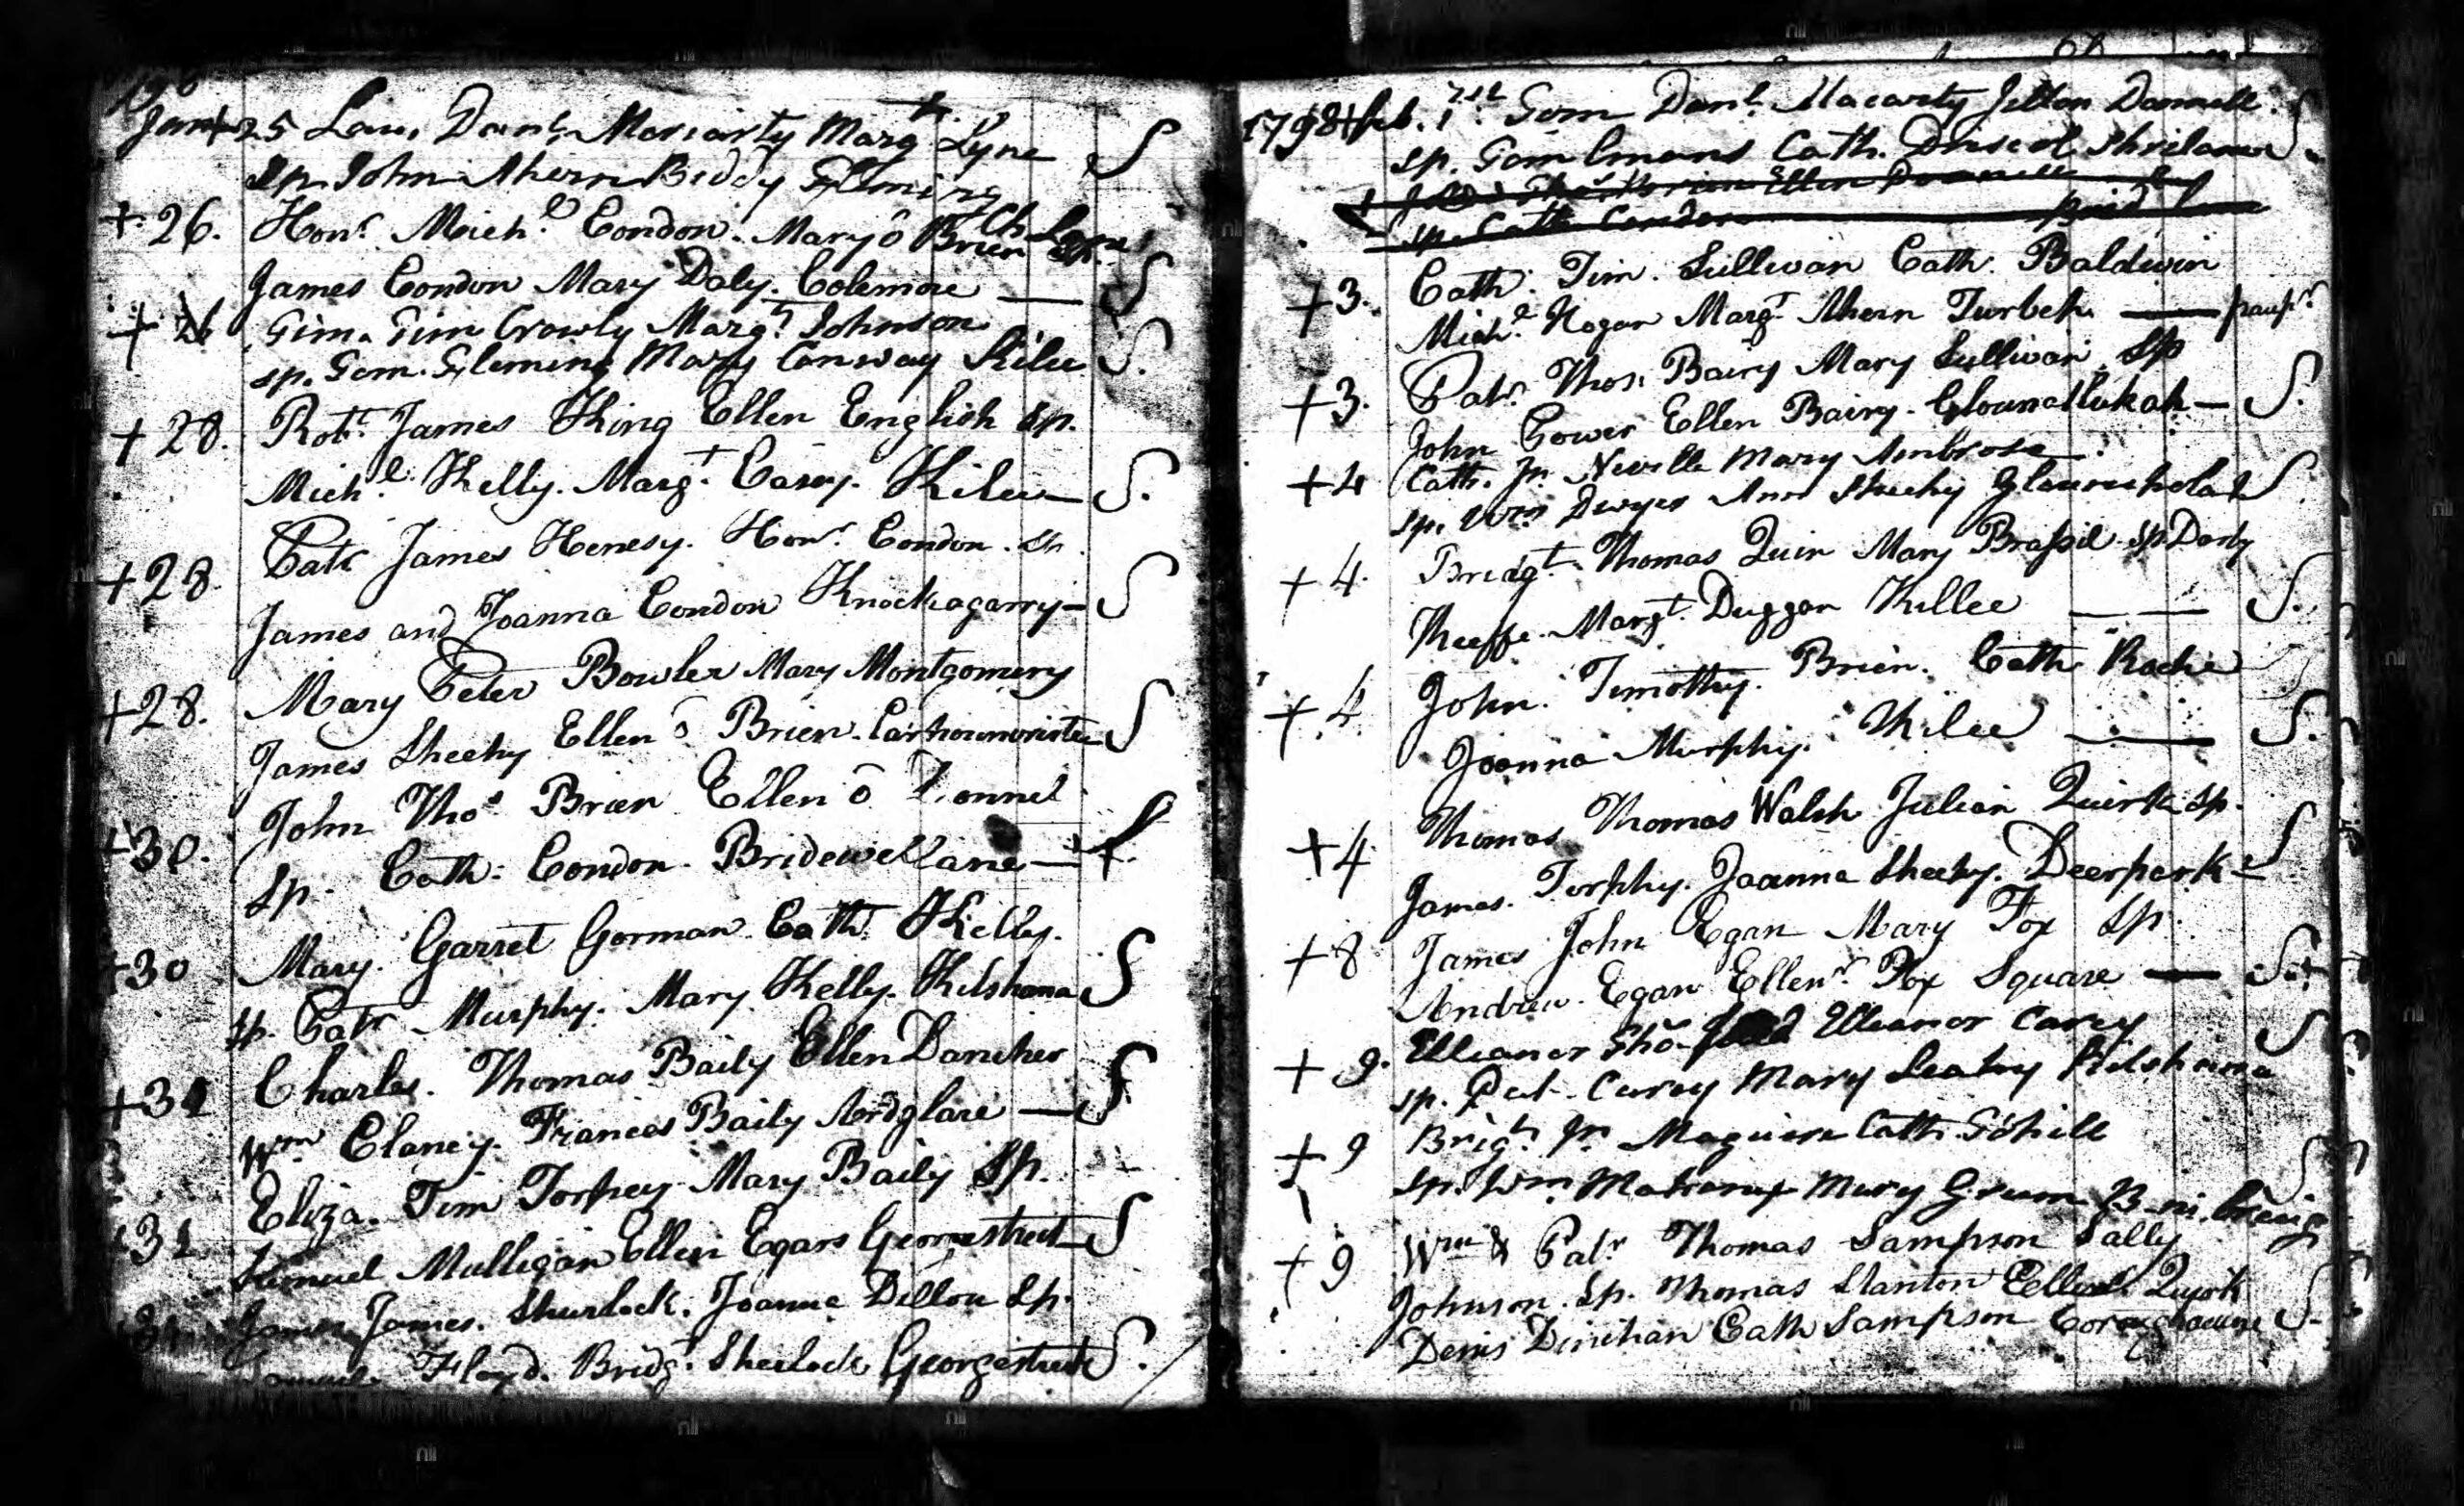 Jan + 25 Lau. Danl. Moriarty Margt. Lyne S
Sp. John Ahern Biddy Fleming
+ 26. Honr. Michl. Condon. Mary ō Brien Sp. Ch Lane
James Condon Mary Daly. Colemore — S
+ 26 Tim. Tim Crowly Margt. Johnson
sp. Tom. Fleming Mary Conway Kilee S.
+ 28. Robt. James King Ellen English Sp.
Michl. Kelly. Margt. Casey. Kilee — S.
+ 28 Patr James Henesy. Honr. Condon. Sp.
James and Joanna Condon Knockagarry — S
+ 28. Mary Peter Bowler Mary Montgomery
James Sheehy Ellen ō Brien. S
+ 30. John Thos Brien Ellen ō Donnel
Sp. Cath. Condon. Bridewellane —
+ 30 Mary. Garret Gorman Cath. Kelly.
Sp. Patr Murphy. Mary Kelly. Kilshana S
+ 31 Charles. Thomas Baily Ellen Danaher
Wm Clancy. Frances Baily Ardglare — S
+ 31 Eliza. Tim Torpey Mary Baily Sp.
Samuel Mulligan Ellen Egars Georgestreet S
James. Shurlock. Joanna Dillon Sp.
Floyd. Bridgt. Sherlock Georgestreet S.
1798 + feb. 1st. Tom Danl. Macarty Donnell. S
sp. Tom Cath. Driscol
+ John Thos Brien Ellen Donnell
sp. Cath Condon Brid Lane
+ 3. Cath. Tim. Sullivan Cath. Baldwin
Michl. Hogan Margt. Ahern Turbeh — paupr.
+ 3. Patr. Thos. Bairy Mary Sullivan Sp
John Gower Ellen Bairy. — S.
+ 4 Cath. Jn. Neville Mary Ambrose
sp. Wm Dwyer Ann Sheehy S
+ 4. Bridgt. Thomas Quin Mary Brassil sp Darby
Keeffe. Margt. Duggan Killee — — S.
+ 4 John. Timothy. Brien. Cath Roche
Joanna Murphy. Kilee — S.
+ 4 Thomas Thomas Walsh Julian Quirk Sp.
James. Torphy. Joanna Sheehy. Deerpark — S
+ 8 James John Egan Mary Fox Sp.
Andrew. Egan Ellenr. Fox Square — S.
+ 9. Elleanor Tho Elleanor Carey S
sp. Pat. Carey Mary Leahy Kilshanna
+ 9 Brigt. Jn. Maguire Cath.
Sp. Wm. Mahony Mary
+ 9 Wm & Patr Thomas Sampson Sally
Johnson. Sp. Thomas Stanton Ellen Quirk
Denis Dinihan Cath Sampson S.